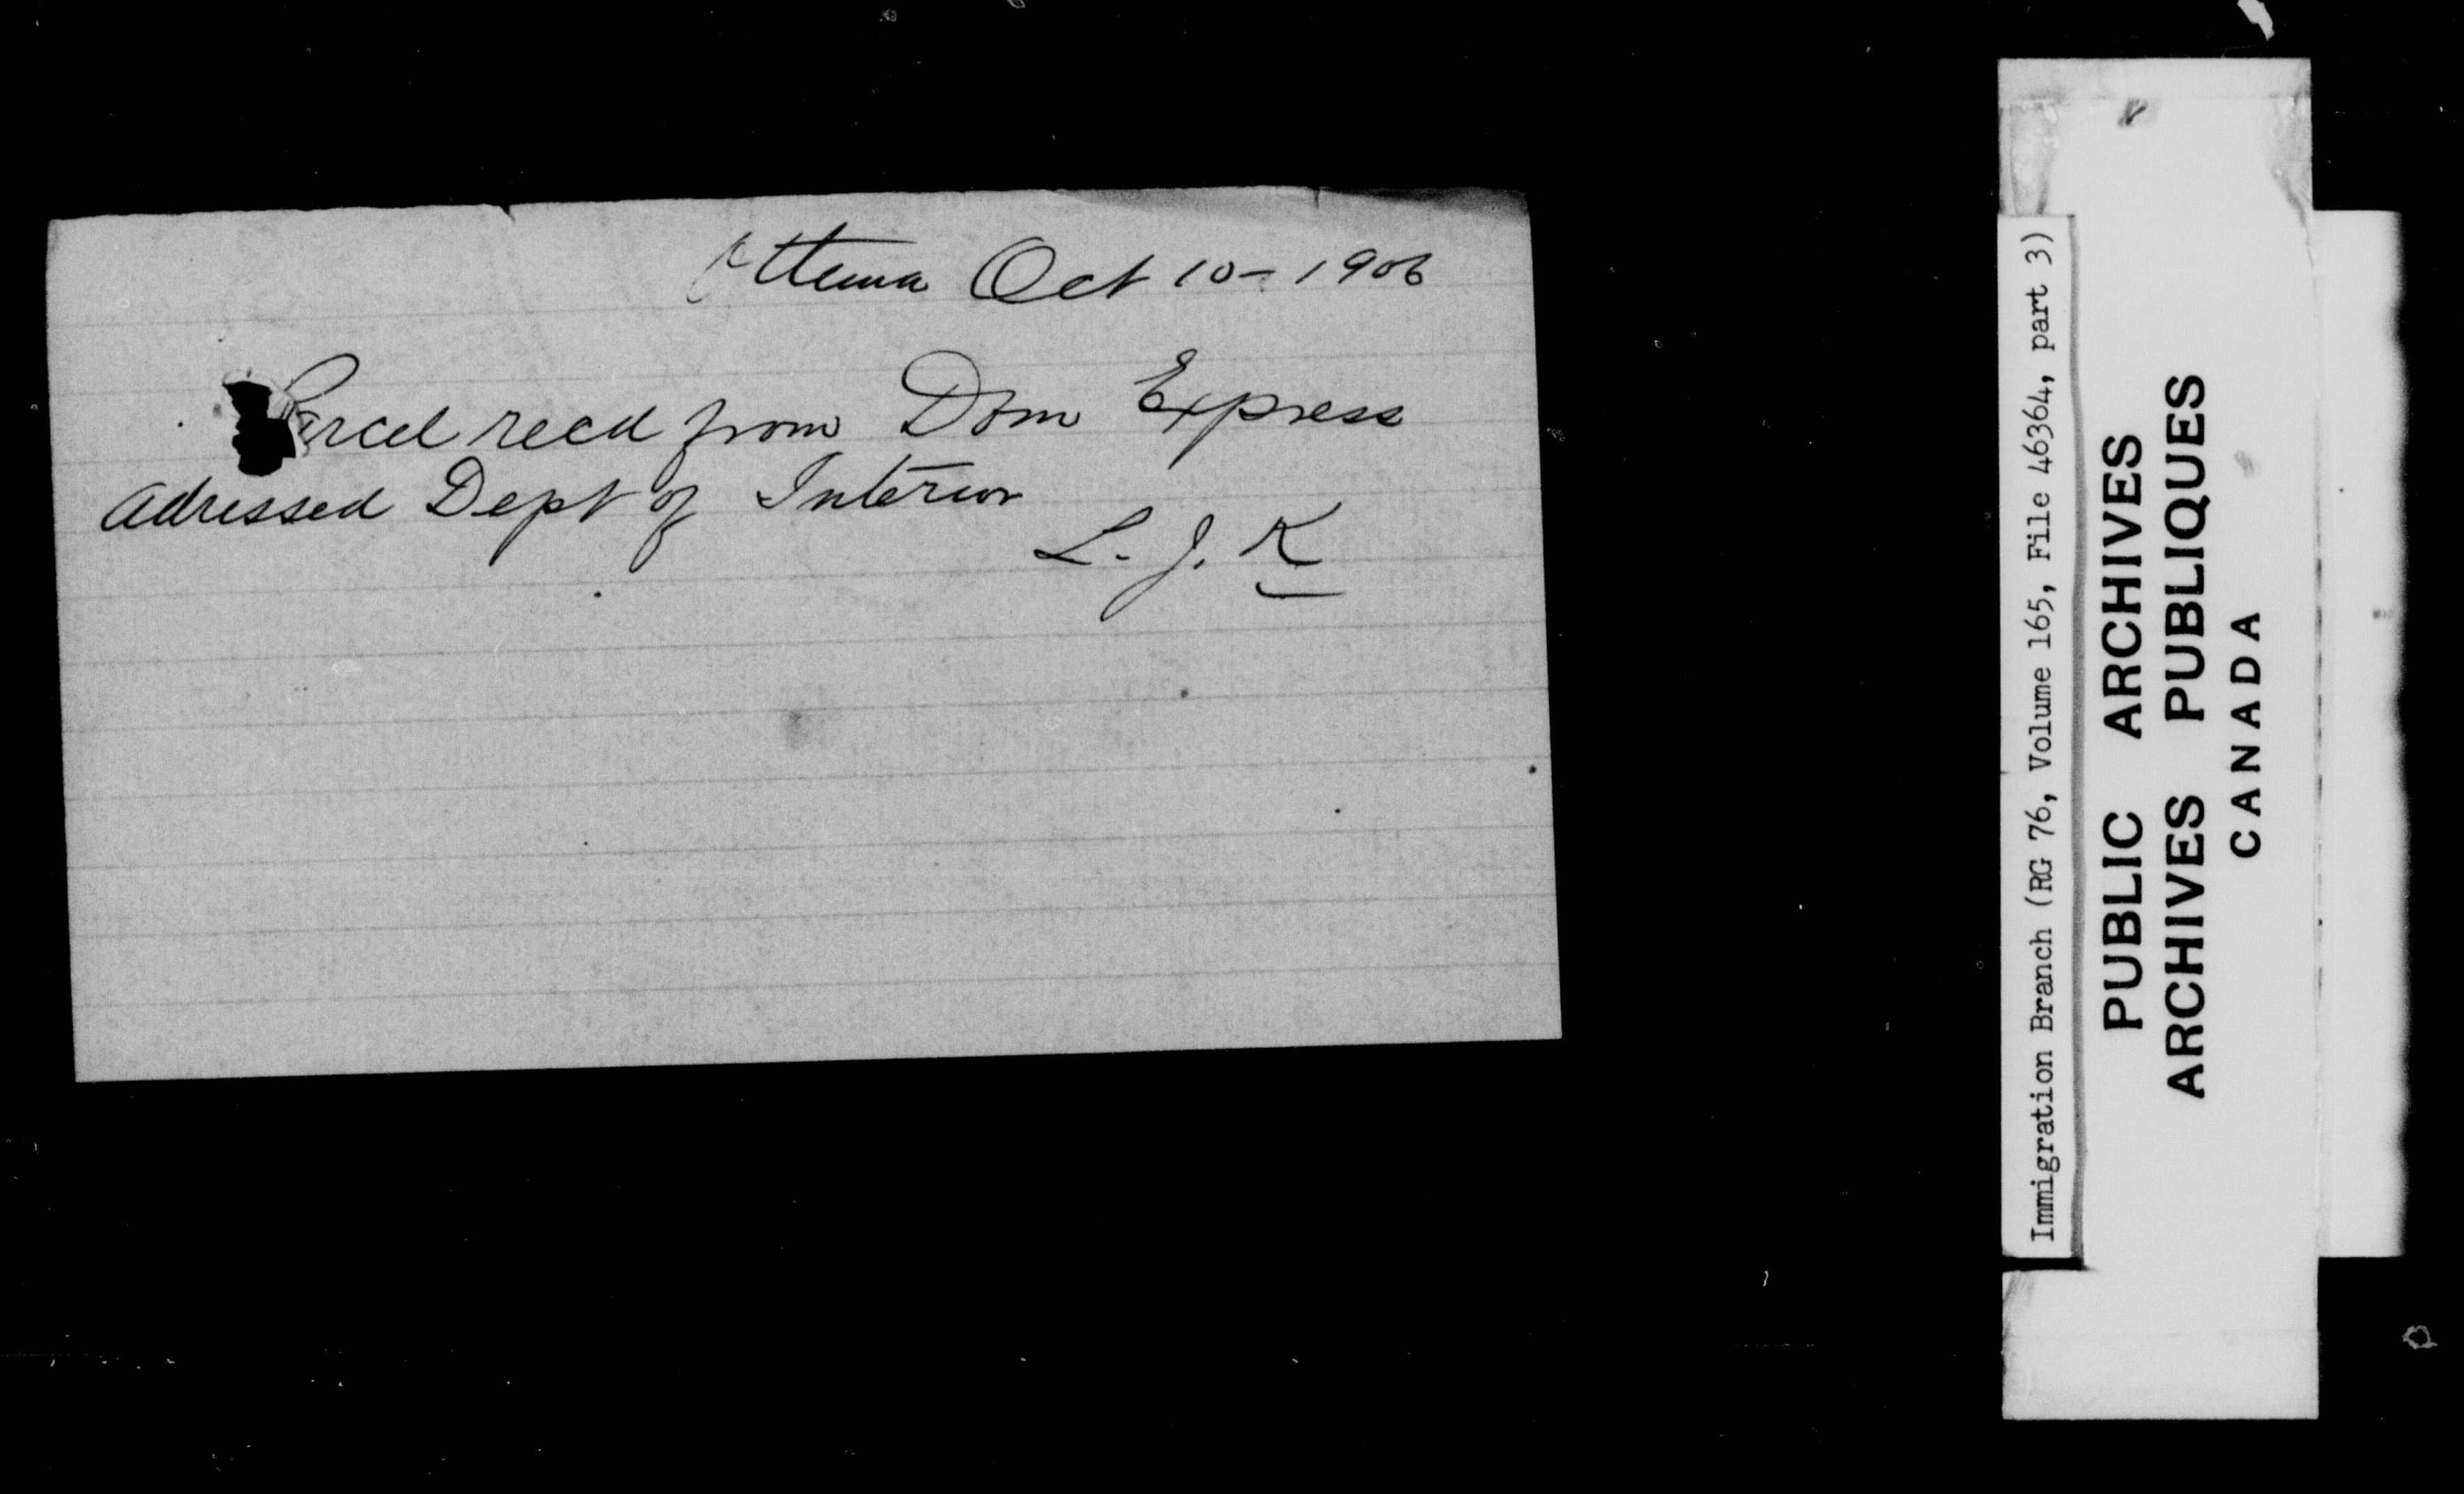 Ottawa Oct 10-1906
Parcel recd from Dom Express
adressed Dept of Interior
L. J. K
Immigration Branch (RG 76, Volume 165, File 46364, part 3)
PUBLIC ARCHIVES
ARCHIVES PUBLIQUES
CANADA